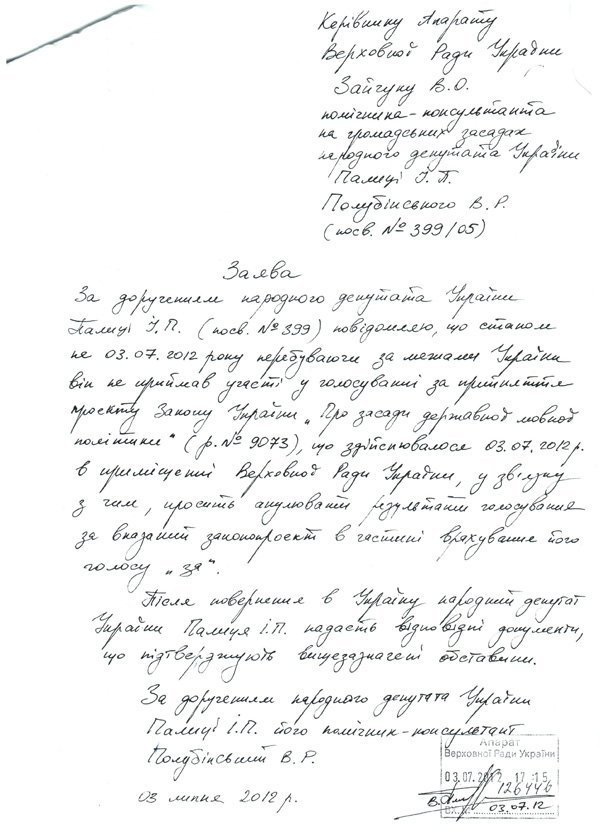 Керівнику Апарату
Верховної Ради України
Зайчуку В.О.
помічника-консультанта
на громадських засадах
народного депутата України
Палиці І.П.
Полубінського В.Р.
(посв. № 399/05)
Заява
За дорученням народного депутата України
Палиці І.П. (посв. № 399) повідомляю, що станом
на 03.07.2012 року перебуваючи за межами України
він не приймав участі у голосуванні за прийняття
проєкту Закону України „Про засади державної мовної
політики" (р. № 9073), що здійснювалося 03.07.2012 р.
в приміщенні Верховної Ради України, у зв'язку
з чим, просить анулювати результати голосування
за вказаний законопроект в частині врахування його
голосу „за".
Після повернення в Україну народний депутат
України Палиця І.П. надасть відповідні документи,
що підтверджують вищезазначені обставини.
За дорученням народного депутата України
Палиці І.П. його помічник-консультант
Полубінський В.Р.
Апарат
Верховної Ради України
03.07.2012 17:15
126446
03 липня 2012 р.
03.07.12